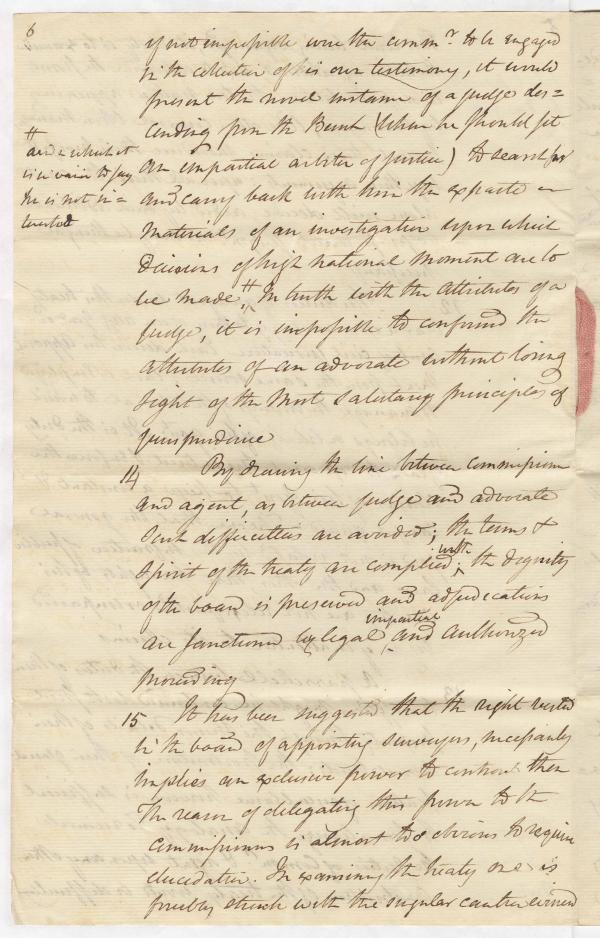 6
if not impossible were the commr. to be engaged
in the collection of his own testimony, it would
present the novel instance of a judge des=
cending from the Bench (where he should sit
an impartial arbiter of justice) to search for
and carry back with him the exparte
materials of an investigation upon which
Decisions of high national moment are to
be made, # In truth with the attributes of a
#
and in which it
is in vain to say
he is not in=
terested
Judge, it is impossible to confound the
attributes of an advocate without losing
sight of the most salutary principles of
jurisprudence
14 By drawing the line between commissioner
and agent, as between judge and advocate
such difficulties are avoided; the terms &
spirit of the treaty are complied with; the dignity
of the board is preserved and adjudications
are sanctioned by legal impartial and authorized
proceeding
15 It has been suggested that the right vested
in the board of appointing surveyors, necessarily
implies an exclusive power to control them
The reason of delegating this power to the
commissioners is almost too obvious to require
elucidation. In examining the treaty one is
forcibly struck with the singular caution evinced